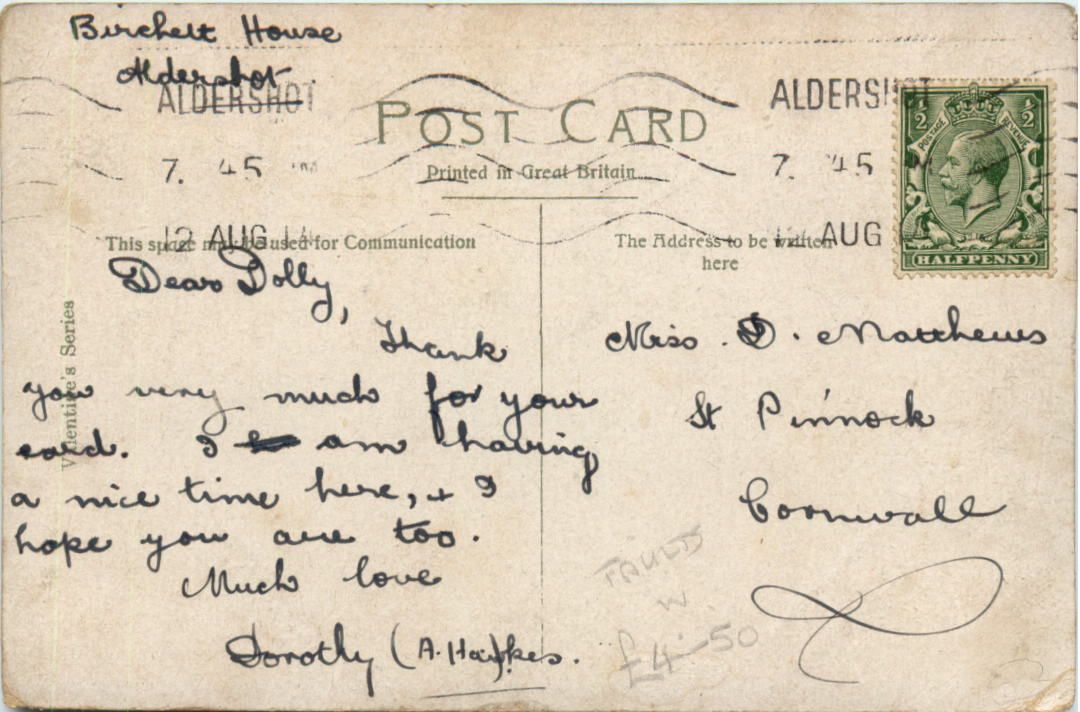 Birchett House
Aldershot.
ALDERSHOT
7. 45
12 AUG 14
ALDERSHOT
7. 45
AUG
POST CARD
Printed in Great Britain
This space may be used for Communication
The Address to be written
here
½ ½
POSTAGE REVENUE
HALFPENNY
Valentine's Series
Dear Dolly,
Thank
you very much for your
card. I am having
a nice time here, + I
hope you are too.
Much love
Dorothy (A. Hawkes.
Miss. D. Matthews
St Pinnock
Cornwall
FAULTS
W
£4-50